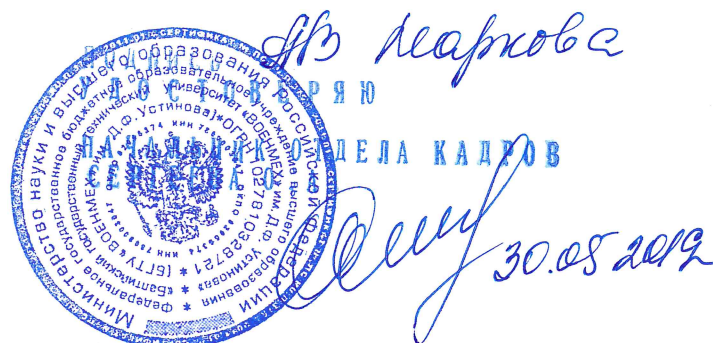 Подпись АВ Маркова
УДОСТОВЕРЯЮ
НАЧАЛЬНИК ОТДЕЛА КАДРОВ
30.05 2019
Министерство науки и высшего образования Российской Федерации
Федеральное государственное бюджетное образовательное учреждение высшего образования
«Балтийский государственный технический университет «ВОЕНМЕХ» им. Д.Ф. Устинова»
(БГТУ «ВОЕНМЕХ» им. Д.Ф. Устинова) * ОГРН 1027810328721 *